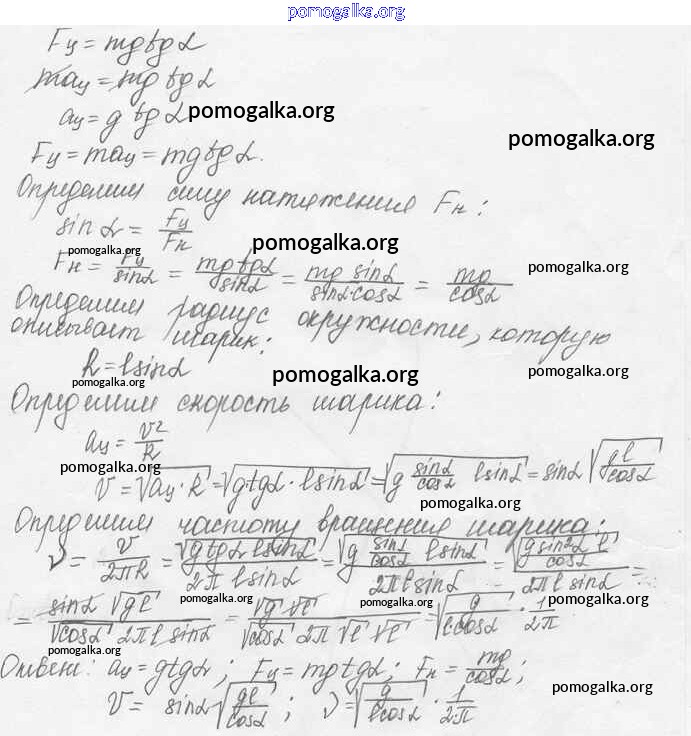 pomogalka.org
Fц = mg tg α
maц = mg tg α
aц = g tg α pomogalka.org
pomogalka.org
Fц = maц = mg tg α.
Определим силу натяжения Fн:
sin α = Fц/Fн
pomogalka.org pomogalka.org
Fн = Fц/sinα = mg tgα/sinα = mg sinα/sinα·cosα = mg/cosα
pomogalka.org
Определим радиус окружности, которую
описывает шарик:
R = l sinα
pomogalka.org pomogalka.org pomogalka.org
Определим скорость шарика:
aц = v²/R
pomogalka.org
v = √aц·R = √g tgα · l sinα = √g sinα/cosα l sinα = sinα √gl/cosα
pomogalka.org
Определим частоту вращения шарика:
ν = v/2πR = √g tgα l sinα/2π l sinα = √g sinα/cosα l sinα/2π l sinα = √g sin²α l/cosα/2π l sinα =
pomogalka.org pomogalka.org pomogalka.org
= sinα √gl/√cosα 2π l sinα = √g √l/√cosα 2π √l √l = √g/l cosα · 1/2π
pomogalka.org
Ответ: aц = g tgα; Fц = mg tgα; Fн = mg/cosα;
pomogalka.org
v = sinα √gl/cosα; ν = √g/l cosα · 1/2π